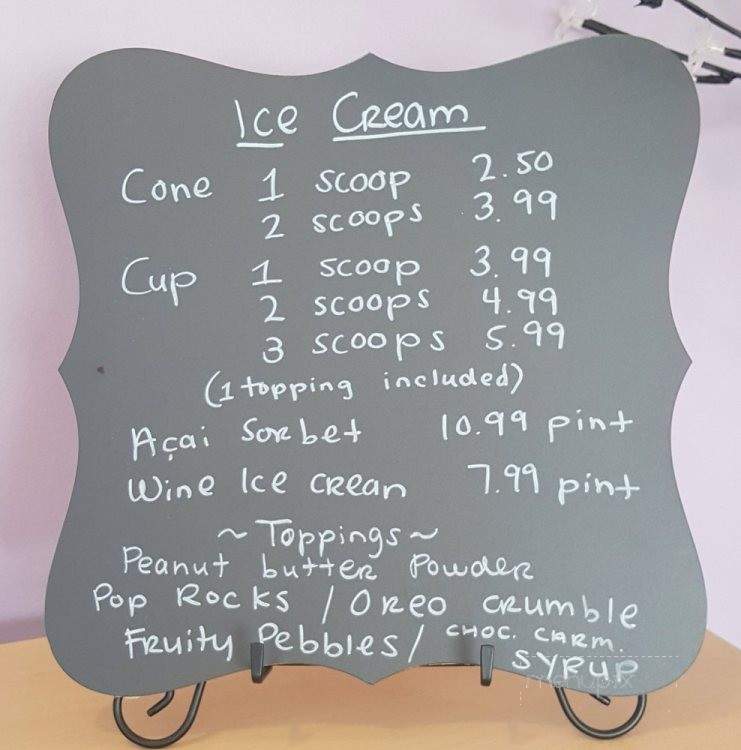 Ice Cream
Cone 1 scoop 2.50
2 scoops 3.99
Cup 1 scoop 3.99
2 scoops 4.99
3 scoops 5.99
(1 topping included)
Açai Sorbet 10.99 pint
Wine Ice crean 7.99 pint
~ Toppings ~
Peanut butter Powder
Pop Rocks / Oreo crumble
Fruity Pebbles / CHOC. CARM.
SYRUP
menupix